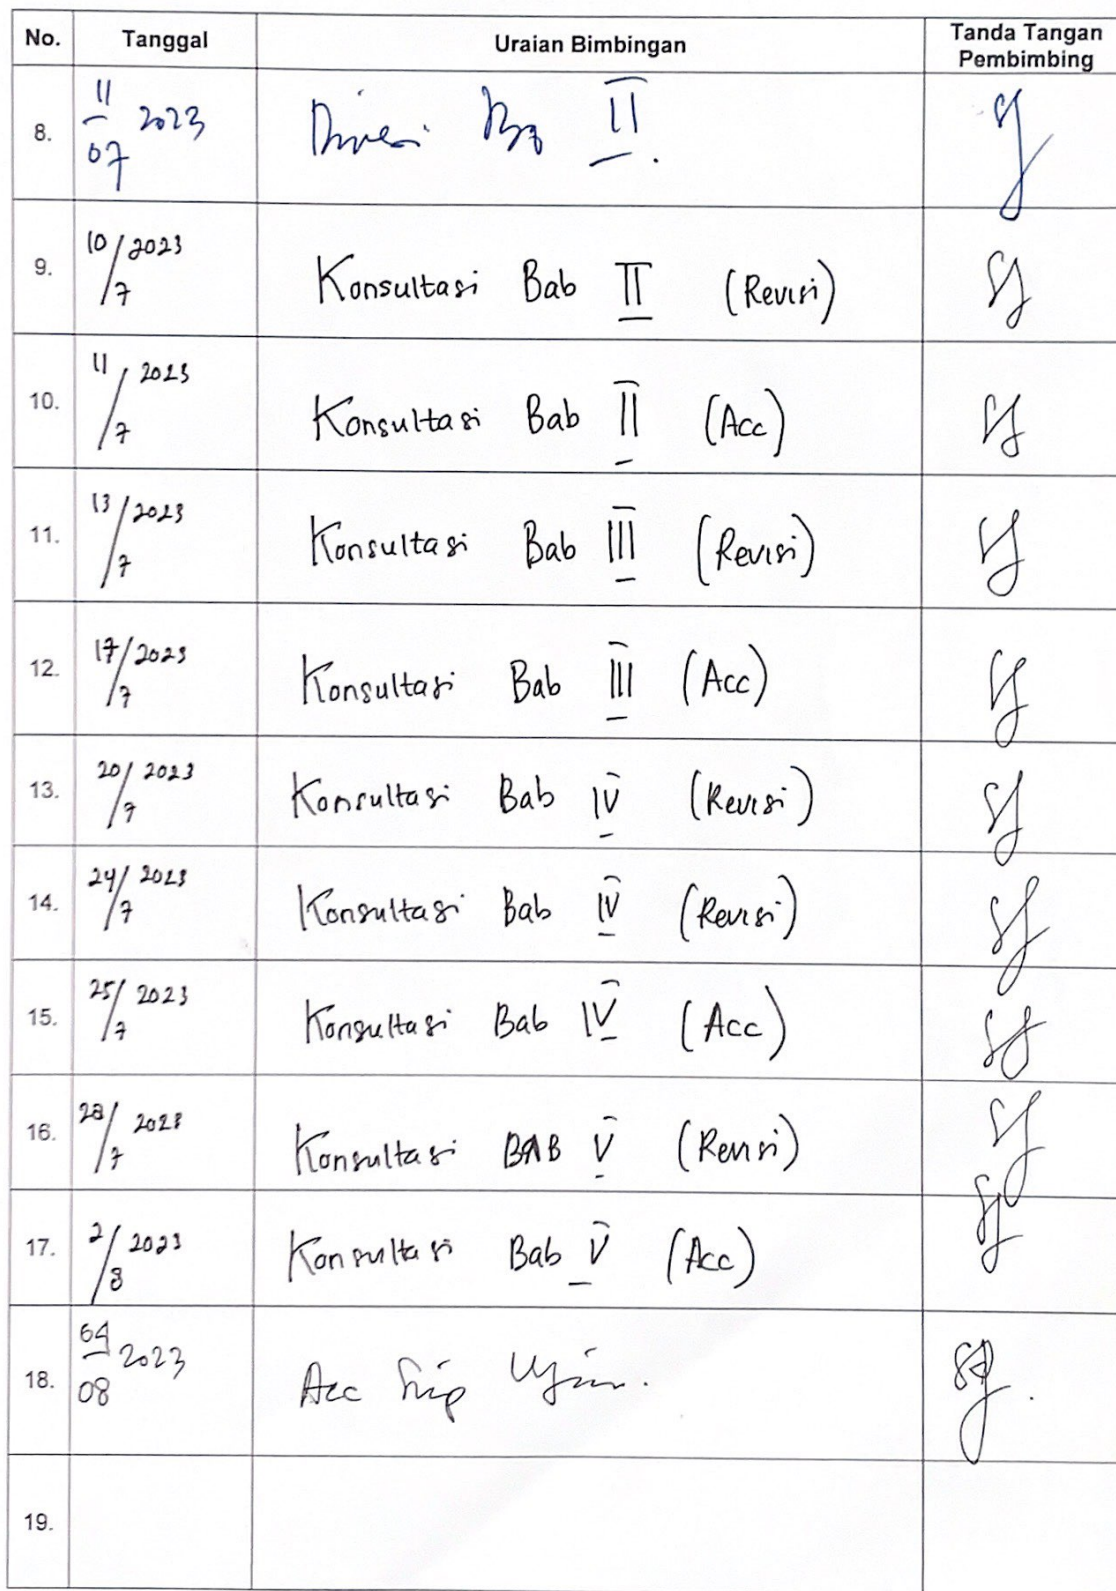 No. Tanggal Uraian Bimbingan Tanda Tangan Pembimbing
8. 11/07 2023 II.
9. 10/7 2023 Konsultasi Bab II (Revisi)
10. 11/7 2023 Konsultasi Bab II (Acc)
11. 13/7 2023 Konsultasi Bab III (Revisi)
12. 17/7 2023 Konsultasi Bab III (Acc)
13. 20/7 2023 Konsultasi Bab IV (Revisi)
14. 24/7 2023 Konsultasi Bab IV (Revisi)
15. 25/7 2023 Konsultasi Bab IV (Acc)
16. 28/7 2023 Konsultasi BAB V (Revisi)
17. 2/8 2023 Konsultasi Bab V (Acc)
18. 04/08 2023 Acc Siap Ujian.
19.